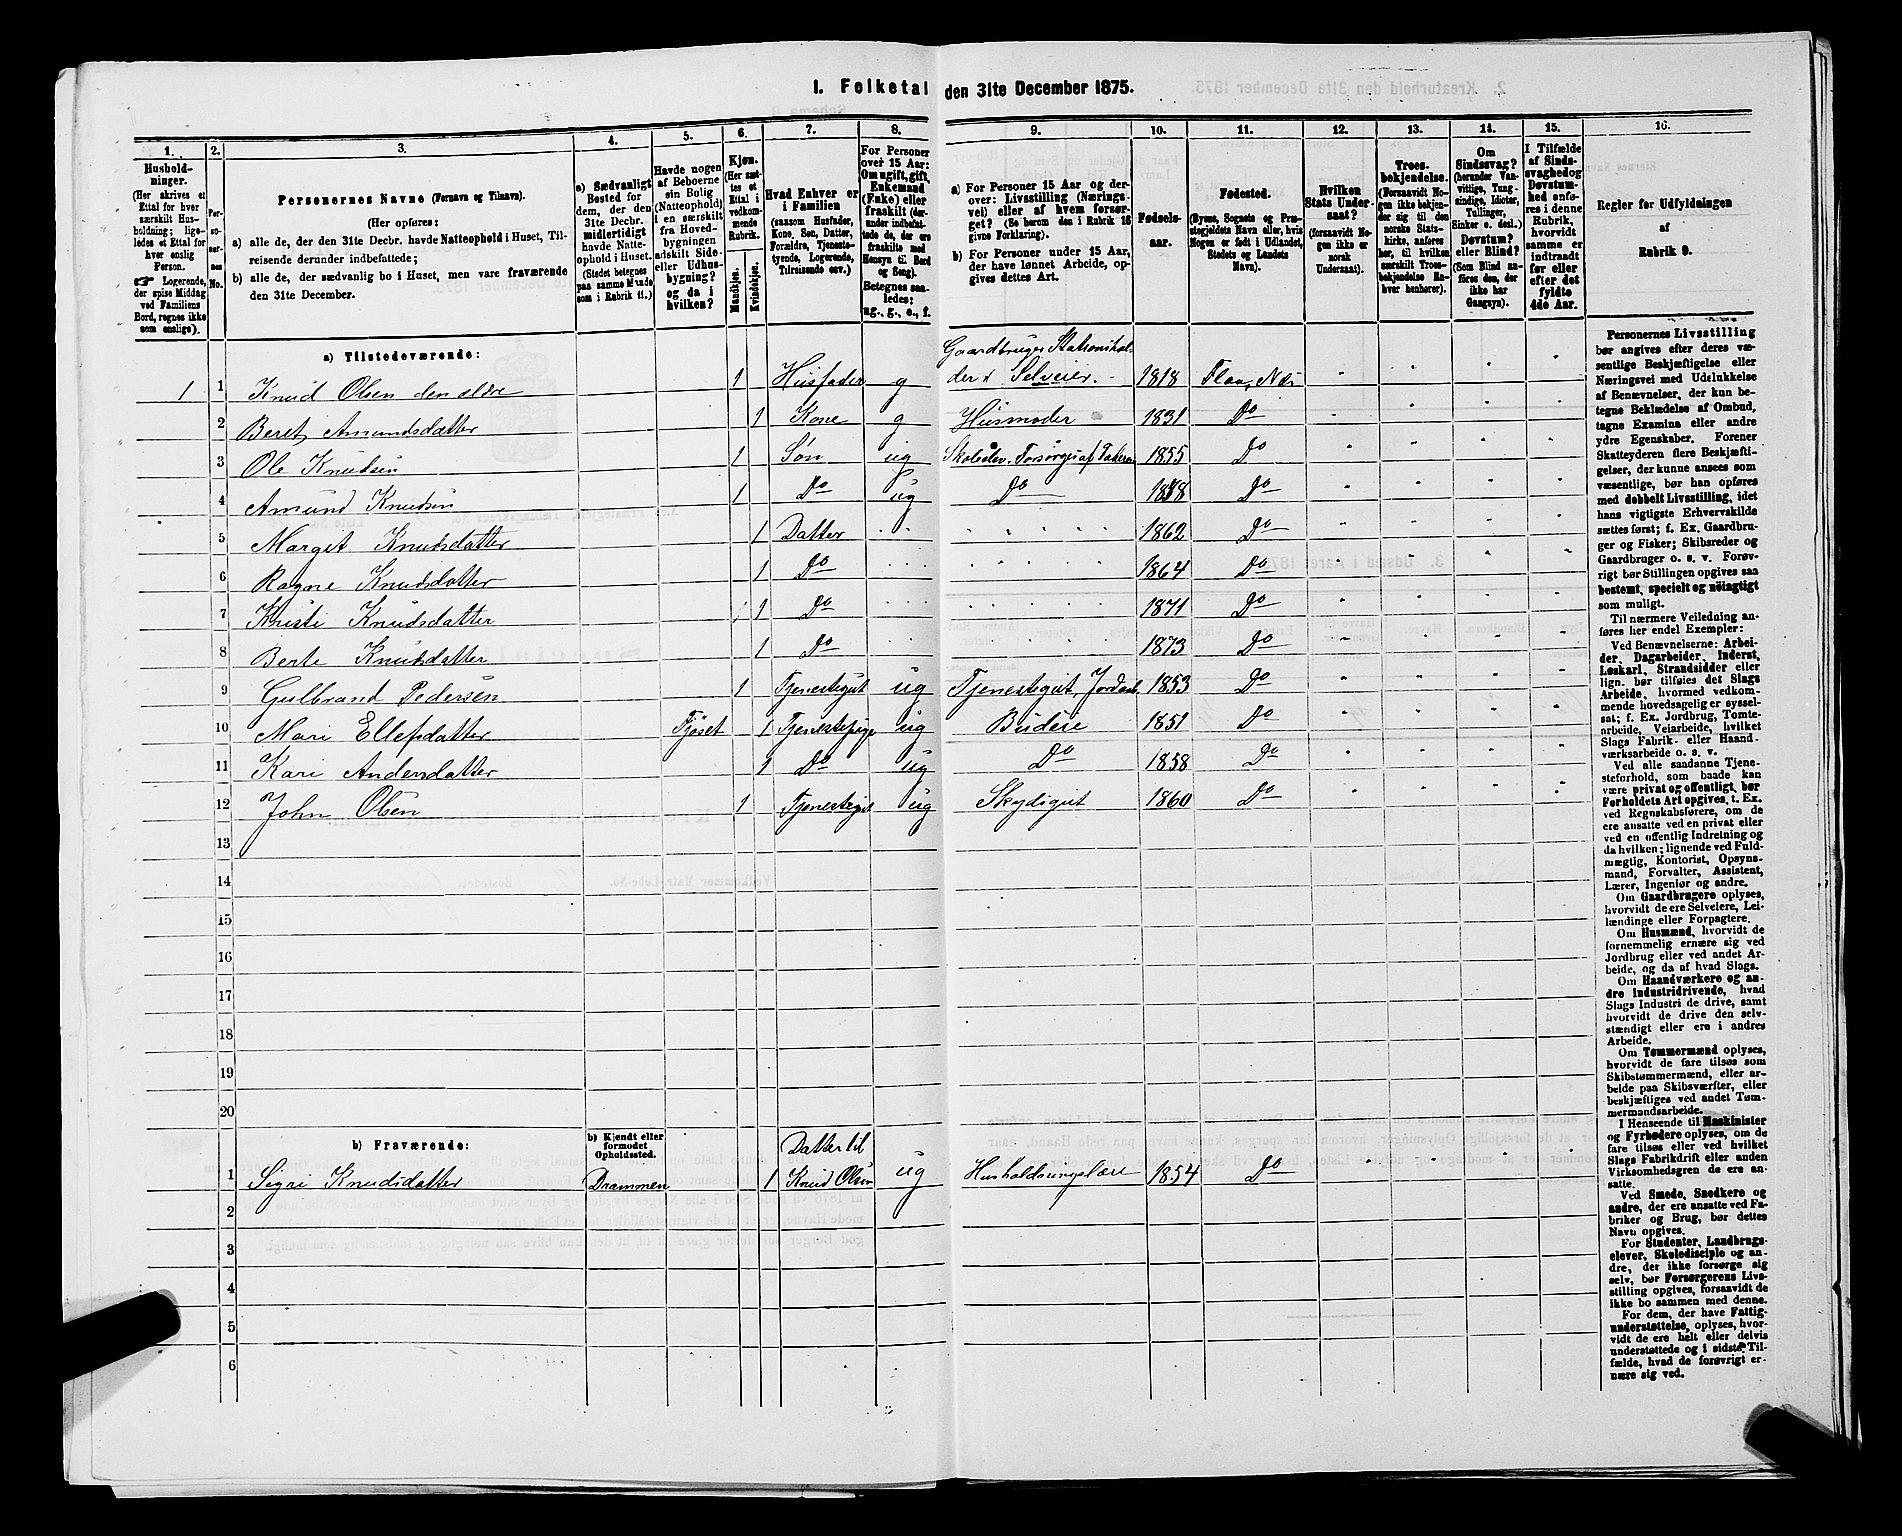 1. Folketal den 31te December 1875.
1. 2. 3. 4. 5. 6. 7. 8. 9. 10. 11. 12. 13. 14. 15. 16.
Hushold-
ninger.
(Her skrives et
Ettal for hver
særskilt Hus-
holdning; lige-
ledes et Ettal for
hver enslig
Person.
☞ Logerende,
der spise Middag
ved Familiens
Bord, regnes ikke
som enslige).
Per-
so-
ner-
nes
No.
Personernes Navne (Fornavn og Tilnavn).
(Her opføres:
a) alle de, der den 31te Decbr. havde Natteophold i Huset, Til-
reisende derunder indbefattede;
b) alle de, der sædvanlig bo i Huset, men vare fraværende
den 31te December.
a) Sædvanligt
Bosted for
dem, der den
31te Decbr.
midlertidigt
havde Natte-
ophold i Huset.
(Stedet betegnes
paa samme Maade
som i Rubrik 11.)
Havde nogen
af Beboerne
sin Bolig
(Natteophold)
i en særskilt
fra Hoved-
bygningen
adskilt Side-
eller Udhus-
bygning?
og da i
hvilken?
Kjøn.
(Her sæt-
tes et
Ettal i
vedkom-
mende
Rubrik.
Mandkjøn.
Kvindekjøn.
Hvad Enhver er
i Familien
(saasom Husfader,
Kone, Søn, Datter,
Forældre, Tjeneste-
tyende, Logerende,
Tilreisende osv.)
For Personer
over 15 Aar:
Om ugift, gift,
Enkemand
(Enke) eller
fraskilt (der-
under indbefat-
tede de, der ere
fraskilte med
Hensyn til Bord
og Seng).
Betegnes saa-
ledes:
ug., g., e., f.
a) For Personer 15 Aar og der-
over: Livsstilling (Nærings-
vei) eller af hvem forsør-
get? (Se herom den i Rubrik 16
givne Forklaring).
b) For Personer under 15 Aar,
der have lønnet Arbeide, op-
gives dettes Art.
Fødsels-
aar.
Fødested.
(Byens, Sognets og Præ-
stegjeldets Navn eller, hvis
Nogen er født i Udlandet,
Stedets og Landets
Navn).
Hvilken
Stats Under-
saat?
(forsaavidt No-
gen ikke er
norsk
Undersaat).
Troes-
bekjendelse.
(Forsaavidt No-
gen ikke bekjen-
der sig til den
norske Stats-
kirke, anføres
her, til hvilken
særskilt Troes-
bekjendelse En-
hver henhører).
Om
Sindssvag?
(herunder Van-
vittige, Tung-
sindige, Idioter,
Tullinger,
Sinker o. desl.).
Døvstum?
eller Blind?
(Som Blind an-
føres den, der
ikke har
Gangsyn).
I Tilfælde
af Sinds-
svaghed og
Døvstum-
hed anfø-
res i denne
Rubrik,
hvorvidt
samme er
indtraadt
før eller
efter det
fyldte
4de Aar.
Regler for Udfyldningen
af
Rubrik 9.
a) Tilstedeværende:
1 1 Knud Olsen den ældre 1 Husfader g Gaardbruger Stationshol-
der & Selveier. 1818 Flaa, Næs
2 Beret Amundsdatter 1 Kone g Husmoder 1831 Do
3 Ole Knudsen 1 Søn ug Skoleelev, Forsørges af Faderen 1855 Do
4 Amund Knudsen 1 Do ug Do 1858 Do
5 Margit Knudsdatter 1 Datter 1862 Do
6 Ragne Knudsdatter 1 Do 1864 Do
7 Kristi Knudsdatter 1 Do 1871 Do
8 Berte Knudsdatter 1 Do 1873 Do
9 Gulbrand Pedersen 1 Tjenestegut ug Tjenestegut, Jordarb. 1853 Do
10 Mari Ellefsdatter Fjøset 1 Tjenestepige ug Budeie 1851 Do
11 Kari Andersdatter 1 Do ug Do 1858 Do
12 John Olsen 1 Tjenestegut ug Skydsgut 1860 Do
13
14
15
16
17
18
19
20
b) Fraværende:
b) Kjendt eller
formodet
Opholdssted.
1 Sigri Knudsdatter Drammen 1 Datter til
Knud Olsen ug Husholdningslære 1854 Do
2
3
4
5
6
Personernes Livsstilling
bør angives efter deres væ-
sentlige Beskjæftigelse eller
Næringsvei med Udelukkelse
af Benævnelser, der kun be-
tegne Beklædelse af Ombud,
tagne Examina eller andre
ydre Egenskaber. Forener
Skatteyderen flere Beskjæfti-
gelser, der kunne ansees som
væsentlige, bør han opføres
med dobbelt Livsstilling, idet
hans vigtigste Erhvervskilde
sættes først; f. Ex. Gaardbru-
ger og Fisker; Skibsreder og
Gaardbruger o. s. v. Forøv-
rigt bør Stillingen opgives saa
bestemt, specielt og nöiagtigt
som muligt.
Til nærmere Veiledning an-
føres her endel Exempler:
Ved Benævnelserne: Arbei-
der, Dagarbeider, Inderst,
Løskarl, Strandsidder eller
lign. bør tilføies det Slags
Arbeide, hvormed vedkom-
mende hovedsagelig er syssel-
sat; f. Ex. Jordbrug, Tomte-
arbeide, Veiarbeide, hvilket
Slags Fabrik- eller Haand-
værksarbeide o. s. v.
Ved alle saadanne Tjene-
steforhold, som baade kan
være privat og offentligt, bør
Forholdets Art opgives, t. Ex.
ved Regnskabsførere, om de
ere ansatte ved en privat eller
ved en offentlig Indretning og
da hvilken; lignende ved Fuld-
mægtig, Kontorist, Opsyns-
mand, Forvalter, Assistent,
Lærer, Ingeniør og andre.
Om Gaardbrugere oplyses,
hvorvidt de ere Selveiere, Lei-
lændinge eller Forpagtere.
Om Husmænd, hvorvidt de
fornemmelig ernære sig ved
Jordbrug eller ved andet Ar-
beide, og da af hvad Slags.
Om Haandværkere og an-
dre Industridrivende, hvad
Slags Industri de drive, samt
hvorvidt de drive den selv-
stændigt eller ere i andres
Arbeide.
Om Tømmermænd oplyses,
hvorvidt de fare tilsøs som
Skibstømmermænd, eller ar-
beide paa Skibsværfter, eller
beskjæftiges ved andet Tøm-
mermandsarbeide.
I Henseende til Maskinister
og Fyrbødere oplyses, om de
fare tilsøs eller ved hvilket
Slags Fabrikdrift eller anden
Virksomhedsgren de ere an-
satte.
Ved Smede, Snedkere og
andre, der ere ansatte ved Fa-
briker og Brug, bør dettes
Navn opgives.
For Studenter, Landbrugs-
elever, Skoledisciple og an-
dre, der ikke forsørge sig
selv, bør Forsørgerens Livs-
stilling opgives, forsaavidt de
ikke bo sammen med denne.
For dem, der have Fattig-
understøttelse, oplyses, hvor-
vidt de ere helt eller delvis
understøttede og i sidste Til-
fælde, hvad de forøvrigt er-
nære sig ved.